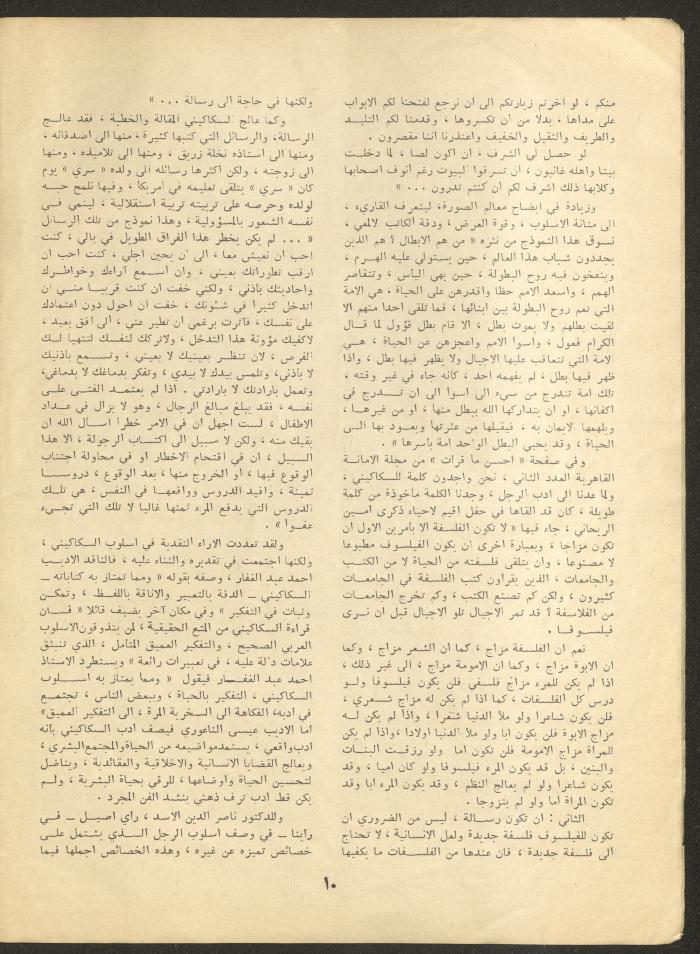 منكم ، لو اخرتم زيارتكم الى ان نرجع لفتحنا لكم الابواب
على مداها ، بدلا من ان تكسروها ، وقدمنا لكم التليد
والطريف والثقيل والخفيف واعتذرنا اننا مقصرون .
لو حصل لي الشرف ، ان اكون لصا ، لما دخلت
بيتا واهله غائبون ، ان تسرقوا البيوت رغم انوف اصحابها
وكلابها ذلك اشرف لكم ان كنتم تدرون ... »
وزيادة في ايضاح معالم الصورة، ليتعرف القاريء ،
الى متانة الاسلوب ، وقوة العرض ، ودقة الكاتب لالمعي ،
نسوق هذا النموذج من نثره « من هم الابطال ؟ هم الذين
يجددون شباب هذا العالم ، حين يستولي عليه الهرم ،
وينفخون فيه روح البطولة ، حين يهي الباس ، وتتقاصر
الهمم ، واسعد الامم حظا واقدرهن على الحياة ، هي الامة
التي تعم روح البطولة بين ابنائها ، فما تلقى احدا منهم الا
لقيت بطلهم ولا يموت بطل ، الا قام بطل قؤول لما قال
الكرام فعول ، واسوا الامم واعجزهن عن الحياة ، هي
لامة التي تتعاقب عليها الاجيال ولا يظهر فيها بطل ، واذا
ظهر فيها بطل ، لم يفهمه احد ، كانه جاء في غير وقته ،
تلك امة تتدرج من سيء الى اسوا الى ان تدرج في
اكفانها ، او ان يتداركها الله ببطل منها ، او من غيرها ،
ويلهمها الايمان به ، فيقيلها من عثرتها ويعود بها الى
الحياة ، وقد يحيي البطل الواحد امة باسرها » .
وفي صفحة « احسن ما قرات » من مجلة الامانة
القاهرية العدد الثاني ، نحن واجدون كلمة للسكاكيني ،
ولما عدنا الى ادب الرجل ، وجدنا الكلمة ماخوذة من كلمة
طويلة ، كان قد القاها في حفل اقيم لاحياء ذكرى امين
الريحاني ، جاء فيها « لا تكون الفلسفة الا بامرين الاول ان
تكون مزاجا ، وبعبارة اخرى ان يكون الفيلسوف مطبوعا
لا مصنوعا ، وان يتلقى فلسفته من الحياة لا من الكتب
والجامعات ، الذين يقراون كتب الفلسفة في الجامعات
كثيرون ، ولكن كم تصنع الكتب ، وكم تخرج الجامعات
من الفلاسفة ؟ قد تمر الاجيال تلو الاجيال قبل ان نرى
فيلسوفا .
نعم ان الفلسفة مزاج ، كما ان الشعر مزاج ، وكما
ان الابوة مزاج ، وكما ان الامومة مزاج ، الى غير ذلك ،
اذا لم يكن للمرء مزاج فلسفي فلن يكون فيلسوفا ولو
درس كل الفلسفات ، كما اذا لم يكن له مزاج شعري ،
فلن يكون شاعرا ولو ملأ الدنيا شعرا ، واذا لم يكن له
مزاج الابوة فلن يكون ابا ولو ملأ الدنيا اولادا ،واذا لم يكن
للمراة مزاج الامومة فلن تكون اما ولو رزقت البنات
والبنين ، بل قد يكون المرء فيلسوفا ولو كان اميا ، وقد
يكون شاعرا ولو لم يعالج النظم ، وقد يكون المرء ابا وقد
تكون المراة اما ولو لم يتزوجا .
الثاني : ان تكون رسالة ، ليس من الضروري ان
تكون للفيلسوف فلسفة جديدة ولعل الانسانية ، لا تحتاج
الى فلسفة جديدة ، فان عندها من الفلسفات ما يكفيها
ولكنها في حاجة الى رسالة ... »
وكما عالج لسكاكيني المقالة والخطبة ، فقد عالج
الرسالة، والرسائل التي كتبها كثيرة ، منها الى اصدقائه ،
ومنها الى استاذه نخلة زريق ، ومنها الى تلاميذه ، ومنها
الى زوجته ، ولكن اكثرها رسائله الى ولده « سري » يوم
كان « سري » يتلقى تعليمه في امريكا ، وفيها نلمح حبه
لولده وحرصه على تربيته تربية استقلالية ، لينمي في
نفسه الشعور بالمسؤولية ، وهذا نموذج من تلك الرسائل
« ... لم يكن يخطر هذا الفراق الطويل في بالي ، كنت
احب ان نعيش معا ، الى ان يحين اجلي ، كنت احب ان
ارقب تطوراتك بعيني ، وان اسمع آراءك وخواطرك
واحاديثك باذني ، ولكني خفت ان كنت قريبا مني ان
اتدخل كثيرا في شئونك ، خفت ان احول دون اعتمادك
على نفسك ، فآثرت برغمي ان تطير عني ، الى افق بعيد ،
لاكفيك مؤونة هذا التدخل ، ولاتركك لنفسك لتتهيا لك
الفرص ، لان تنظر بعينيك لا بعيني ، وتسمع باذنيك
لا باذني، وتلمس بيدك لا بيدي ، وتفكر بدماغك لا بدماغي،
وتعمل بارادتك لا بارادتي . اذا لم يعتمد الفتى على
نفسه ، فقد يبلغ مبالغ الرجال ، وهو لا يزال في عداد
الاطفال ، لست اجهل ان في الامر خطرا اسال الله ان
يقيك منه ، ولكن لا سبيل الى اكتساب الرجولة ، الا هذا
السبيل ، ان في اقتحام الاخطار او في محاولة اجتناب
الوقوع فيها ، او الخروج منها ، بعد الوقوع ، دروسا
ثمينة ، وافيد الدروس وواقعها في النفس ، هي تلك
الدروس التي يدفع المرء ثمنها غاليا لا تلك التي تجيء
عفوا » .
ولقد تعددت الاراء النقدية في اسلوب السكاكيني ،
ولكنها اجتمعت في تقديره والثناء عليه ، فالناقد الاديب
احمد عبد الغفار ، وصفه بقوله « ومما تمتاز به كتاباته ــ
السكاكيني ــ الدقة بالتعبير والاناقة باللفظ ، وتمكن
وثبات في التفكير » وفي مكان آخر يضيف قائلا « فان
قراءة السكاكيني من المتع الحقيقية ، لمن يتذوقون الاسلوب
العربي الصحيح ، والتفكير العميق المتأمل ، الذي تنبثق
علامات دالة عليه ، في تعبيرات رائعة » ويستطرد الاستاذ
احمد عبد الغفار فيقول « ومما يمتاز به اسلوب
السكاكيني ، التفكير بالحياة ، وببعض الناس ، تجتمع
في ادبه، الفكاهة الى السخرية المرة ، الى التفكير العميق»
اما الاديب عيسى الناعوري فيصف ادب السكاكيني بانه
ادب واقعي ، يستمد مواضيعه من الحياة والمجتمع البشري ،
ويعالج القضايا الانسانية والاخلاقية والعقائدية ، ويناضل
لتحسين الحياة واوضاعها ، للرقي بحياة البشرية ، ولم
يكن قط ادب ترف ذهني ينشد الفن المجرد .
وللدكتور ناصر الدين الاسد ، رأي اصيل ــ في
راينا ــ في وصف اسلوب الرجل الذي يشتمل على
خصائص تميزه عن غيره ، وهذه الخصائص اجملها فيما
١٠